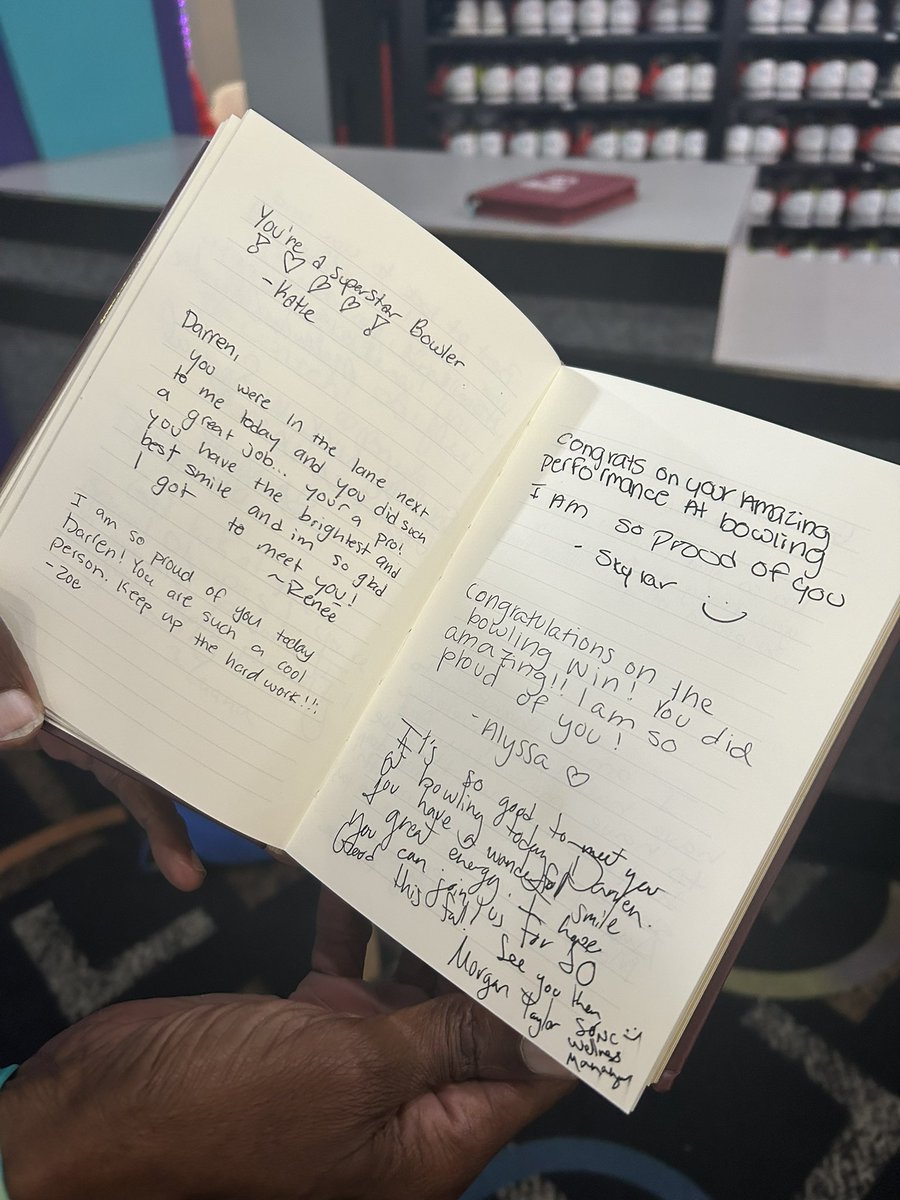 You're a superstar Bowler
! ♡ ♡ ♡ !
- Katie
Darren,
you were in the lane next
to me today and you did such
a great job... your a pro!
you have the brightest and
best smile and im so glad
I got to meet you!
~ Renée
I am so proud of you today
Darren! You are such a cool
person. Keep up the hard work!!!
- Zoe
congrats on your Amazing
performance At bowling
I Am so prood of you
- Skylar :)
congratulations on the
bowling win! You did
amazing!! I am so
proud of you!
- Alyssa ♡
It's so good to meet you
at bowling today Darren.
You have a wonderful smile
great energy. I hope
You can join us for SO
this fall. See you then :)
Morgan Taylor SONC
Wellness
Manager